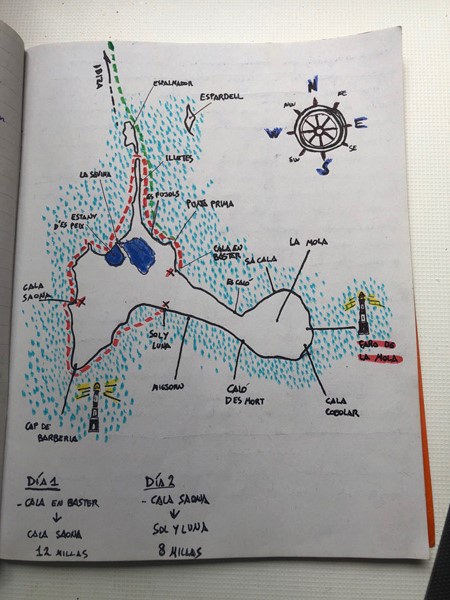 IBIZA
ESPALMADOR
ESPARDELL
N
NW
NE
W
E
SW
SE
S
ILLETES
LA SAVINA
ES PUJOLS
PUNTA PRIMA
ESTANY
D'ES PEIX
CALA EN
BASTER
LA MOLA
SA CALA
ES CALÓ
CALA
SAONA
SOL Y
LUNA
FARO DE
LA MOLA
MIGJORN
CALÓ
D'ES MORT
CALA
CODOLAR
CAP DE
BARBERIA
DÍA 1
- CALA EN BASTER
CALA SAONA
12 MILLAS
DÍA 2
- CALA SAONA
SOL Y LUNA
8 MILLAS